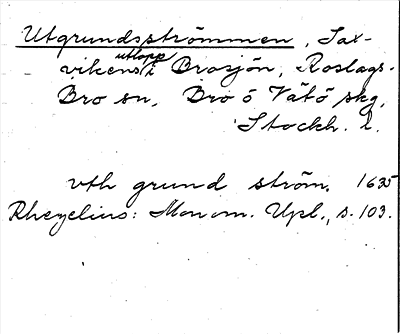 Utgrundsströmmen, Tax-
vikens utlopp i Brosjön, Roslags-
Bro sn, Bro ö Vätö skg,
Stockh. l.
vth grund ström. 1635
Rhezelius: Monom. Upl., s. 103.